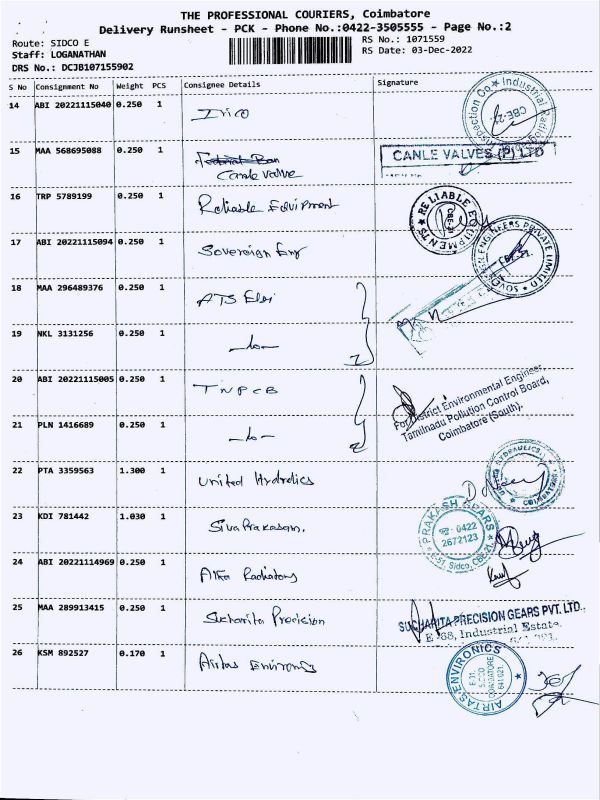 THE PROFESSIONAL COURIERS, Coimbatore
Delivery Runsheet - PCK - Phone No.:0422-3505555 - Page No.:2
Route: SIDCO E
RS No.: 1071559
Staff: LOGANATHAN
RS Date: 03-Dec-2022
DRS No.: DCJB107155902
S No Consignment No Weight PCS Consignee Details Signature
14 ABI 20221115040 0.250 1 Irico
Industrial Radiog
Inspection Co
CBE-21
15 MAA 568695088 0.250 1 Federal Ban
Canle valve
CANLE VALVES (P) LTD
16 TRP 5789199 0.250 1 Reliable Equipment
RELIABLE EQUIPMENTS
CBE-21
17 ABI 20221115094 0.250 1 Sovereign Eng
SOVEREIGN ENGINEERS PRIVATE LIMITED
CBE-21.
18 MAA 296489376 0.250 1 ATS Elgi
19 NKL 3131256 0.250 1 -do-
2
20 ABI 20221115005 0.250 1 TNPCB
For District Environmental Engineer,
Tamilnadu Pollution Control Board,
Coimbatore (South).
21 PLN 1416689 0.250 1 -do-
2
22 PTA 3359563 1.300 1 United Hydrolics
HYDRAULICS
COIMBATORE
23 KDI 781442 1.030 1 Siva Prakasam.
PRAKASH GEARS
0422
2672123
E-51, Sidco, CBE-21
24 ABI 20221114969 0.250 1 Alka Radiators
25 MAA 289913415 0.250 1 Sucharita Precision
SUCHARITA PRECISION GEARS PVT. LTD.,
E 68, Industrial Estate,
26 KSM 892527 0.170 1 Airtas Environics
AIRTAS ENVIRONICS
E31,
SIDCO
COIMBATORE
641 021